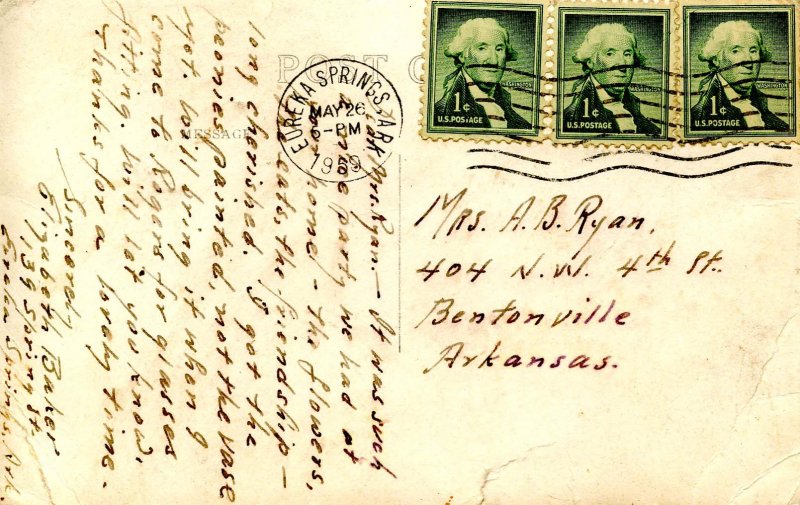 POST C
MESSAGE
EUREKA SPRINGS, ARK
MAY 26
6-PM
1959
WASHINGTON
1¢
U.S. POSTAGE
WASHINGTON
1¢
U.S. POSTAGE
WASHINGTON
1¢
U.S. POSTAGE
Mrs. Ryan.— It was such
nice party we had at
home - the flowers,
eats, the friendship -
long cherished. I got the
peonies painted, not the vase
yet. Will bring it when I
come to Rogers for glasses
fitting. Will let you know,
Thanks for a lovely time.
Sincerely
Elizabeth Baker
139 Spring St.
Eureka Springs, Ark
Mrs. A. B. Ryan,
404 N.W. 4th St.
Bentonville
Arkansas.